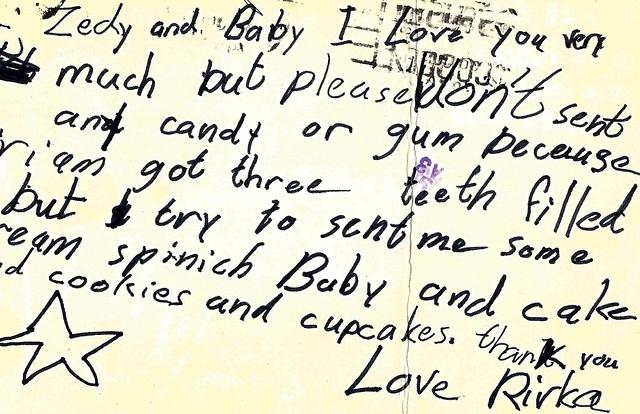 Zedy and Baby I Love you very
much but please don't sent
any candy or gum pecause
riam got three teeth filled
but I try to sent me some
ream spinich Baby and cake
nd cookies and cupcakes. thank you
Love Rivka